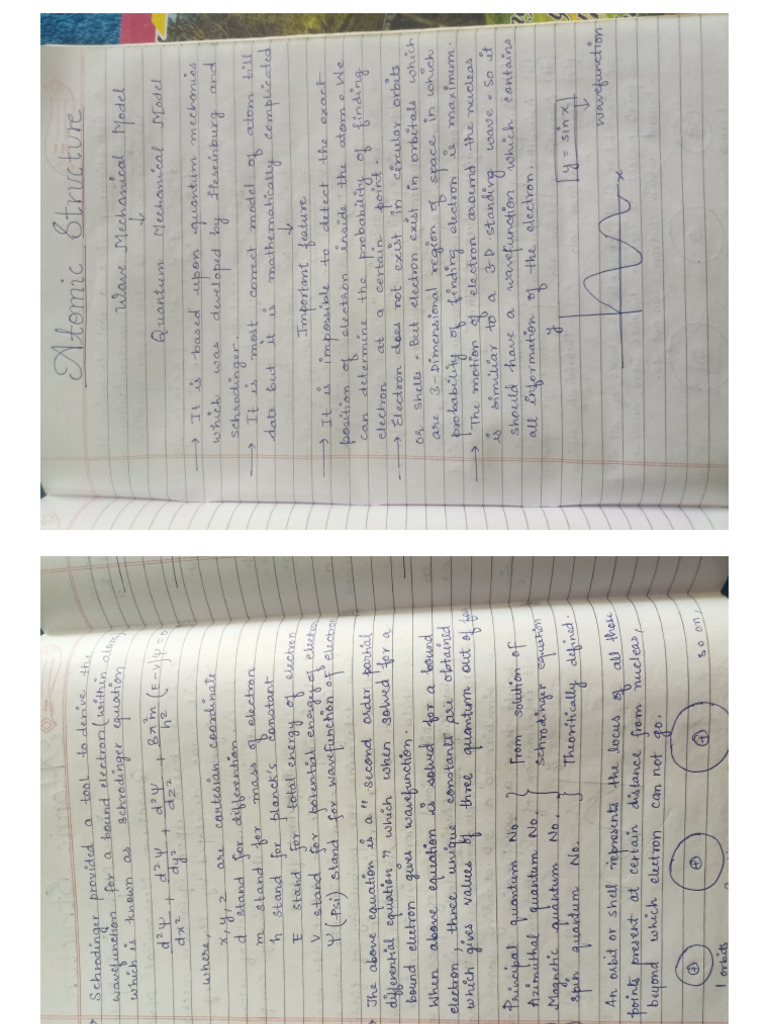 Atomic Structure
Wave Mechanical Model
↓
Quantum Mechanical Model
→ It is based upon quantum mechanics
which was developed by Heseinburg and
schrodinger.
→ It is most correct model of atom till
date but it is mathematically complicated
Important feature
↓
→ It is impossible to detect the exact
position of electron inside the atom. We
can determine the probability of finding
electron at a certain point.
→ Electron does not exist in circular orbits
or shells. But electron exist in orbitals which
are 3-Dimensional region of space in which
probability of finding electron is maximum.
→ The motion of electron around the nucleas
is similiar to a 3-D standing wave. So it
should have a wavefunction which contains
all information of the electron.
y
[y = sin x]
↓
wavefunction
x
→ Schrodinger provided a tool to derive the
wavefunction for a bound electron (within atom)
which is known as schrodinger equation
d²Ψ/dx² + d²Ψ/dy² + d²Ψ/dz² + 8π²m/h² (E-V)Ψ = 0
where,
x, y, z are cartesian coordinate
d stand for differention.
m stand for mass of electron
h stand for planck's constant
E stand for total energy of electron
V stand for potential energy of electron
Ψ (Psi) stand for wavefunction of electron
→ The above equation is a " second order partial
differential equation " which when solved for a
bound electron gives wavefunction.
When above equation is solved for a bound
electron, three unique constants are obtained
which gives values of three quantum out of
Principal quantum No. } From solution of
Azimuthal quantum No. } schrodinger equation
Magnetic quantum No. }
spin quantum No. } Theoritically defined.
An orbit or shell represents the locus of all those
points present at certain distance from nucleas,
beyond which electron can not go.
+
+
+
so on,
1 orbits